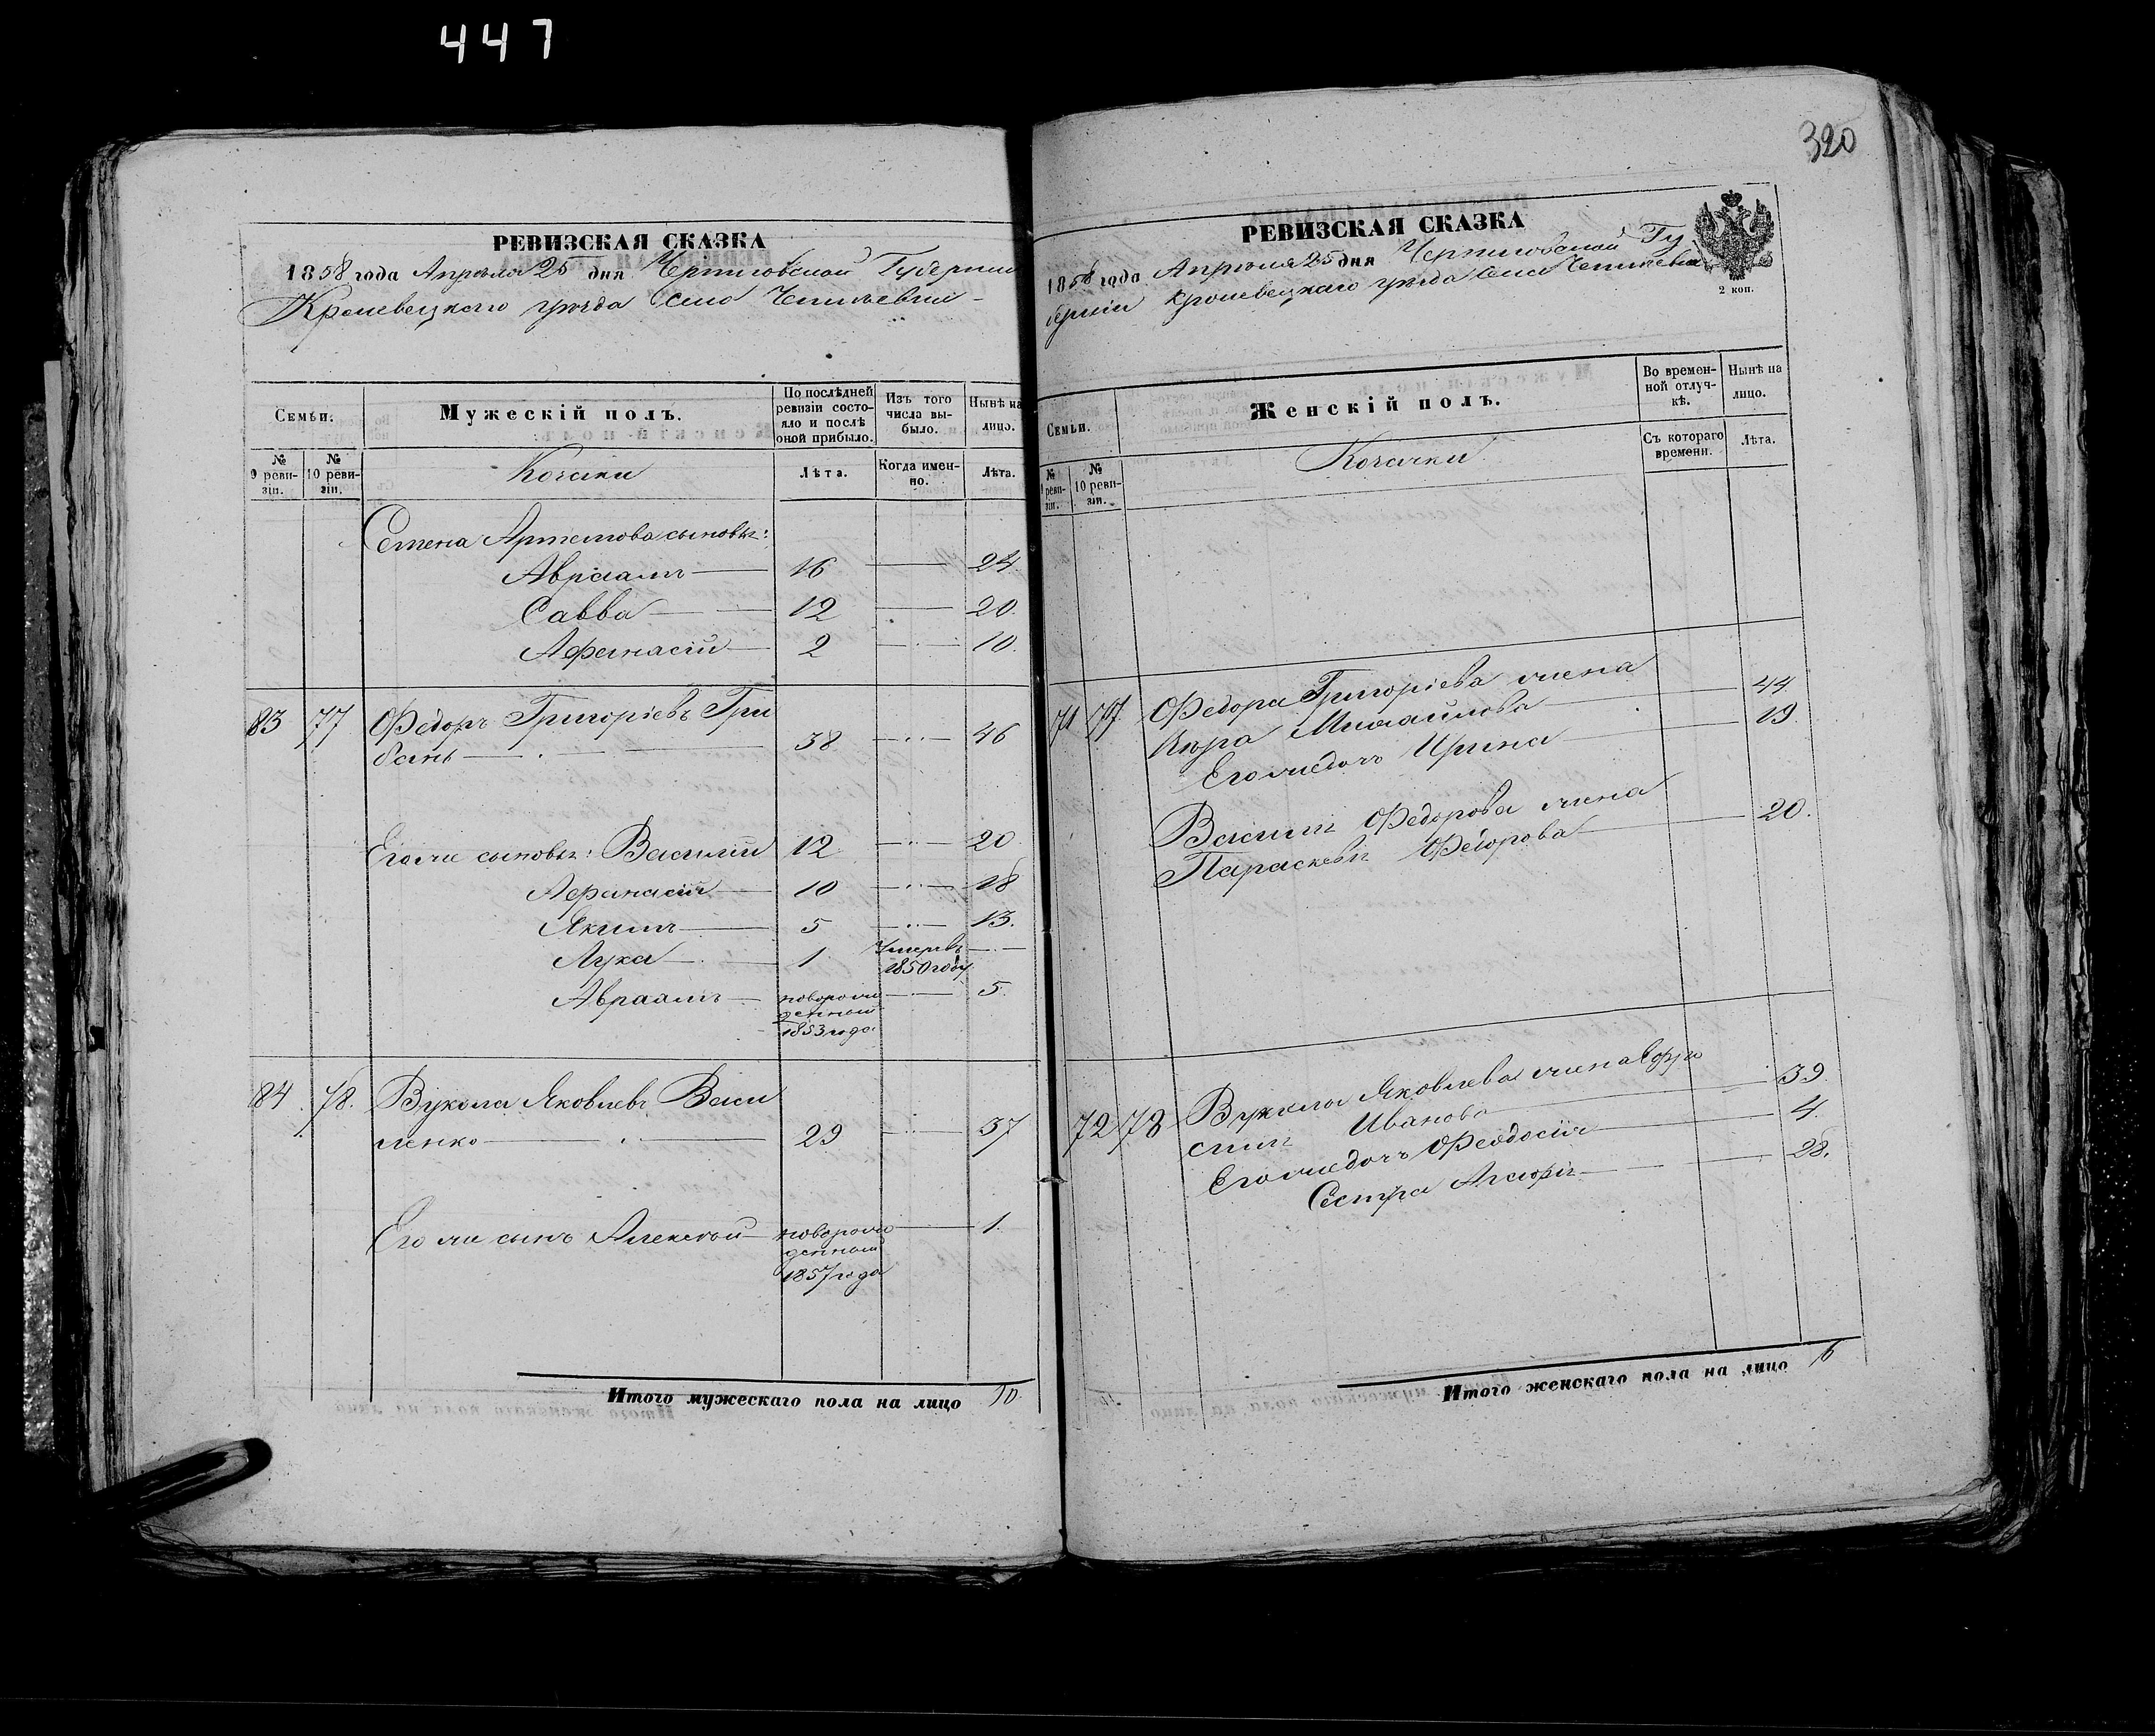 447
320
РЕВИЗСКАЯ СКАЗКА
1858 года Апреля 25 дня Черниговской Губернии
Кролевецкого уезда Село
Семьи.
Мужескій полъ.
По послѣдней ревизіи состояло и послѣ оной прибыло.
Изъ того числа выбыло.
Нынѣ на лицо.
№ 9 ревизіи.
№ 10 ревизіи.
Козаки
Лѣта.
Когда именно.
Лѣта.
Семена Артемова сыновья:
Авраамъ 16 24
Савва 12 20.
Афанасій 2 10.
83 77 Федоръ Григоріевъ Гри
бань 38 46
Его же сыновья: Василій 12 20
Афанасій 10 18
Якимъ 5 13.
Лука 1 Умеръ въ 1850 году
Авраамъ новорожденный 1853 года 5.
84 78. Вукола Яковлевъ Васи
ленко 29 37
Его же сынъ Алексѣй новорожденный 1857 года 1.
Итого мужескаго пола на лицо 10
РЕВИЗСКАЯ СКАЗКА
1858 года Апреля 25 дня Черниговской Гу
берніи Кролевецкаго уезда Села
2 коп.
Семьи.
Женскій полъ.
Во временной отлучкѣ.
Нынѣ на лицо.
№ 9 ревизіи.
№ 10 ревизіи.
Козачки
Съ котораго времени.
Лѣта.
71 77 Федора Григоріева жена
Михайлова 44
Его же дочь Ирина 19.
Василія Федорова жена
Параскевія Федорова 20.
72 78 Вукола Яковлева жена Ефро
синія Иванова 39.
Его же дочь Феодосія 4.
Сестра 28.
Итого женскаго пола на лицо 6